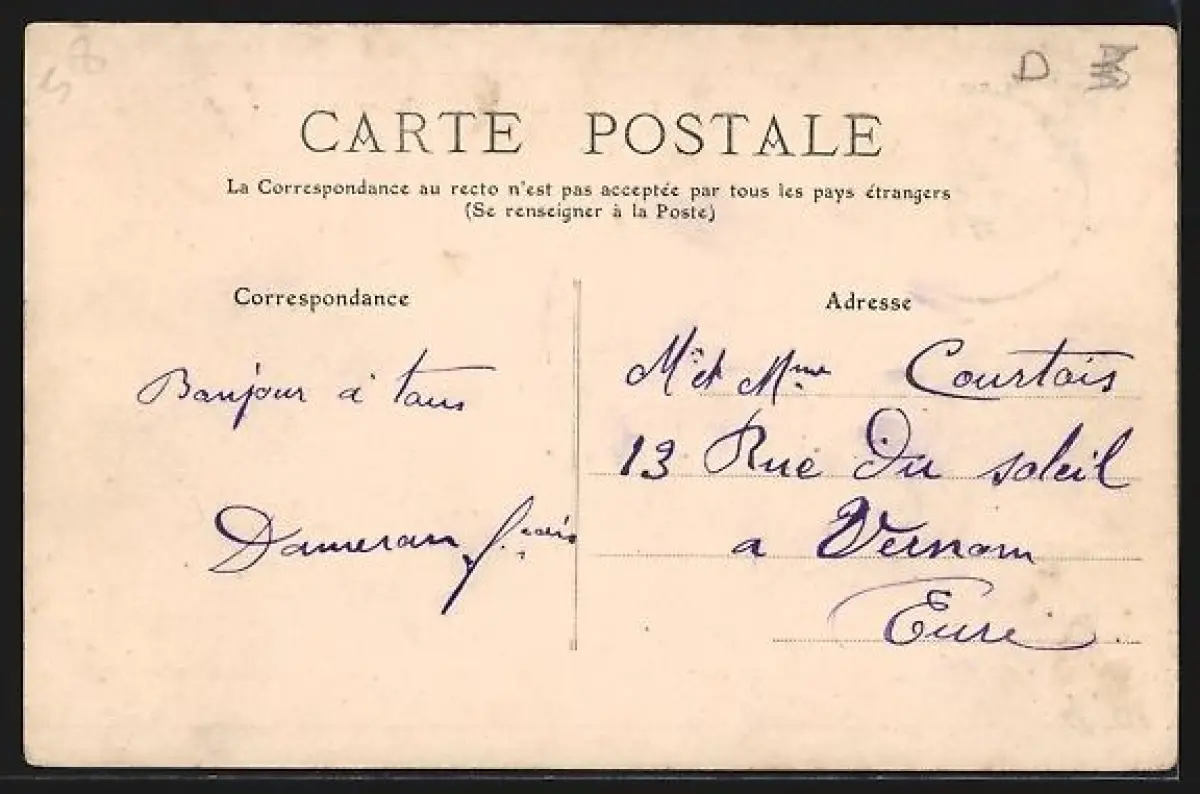 58
D
CARTE POSTALE
La Correspondance au recto n'est pas acceptée par tous les pays étrangers
(Se renseigner à la Poste)
Correspondance
Bonjour à tous
Dameron
Adresse
Mr et Mme Courtois
13 Rue Du soleil
a Vernon
Eure